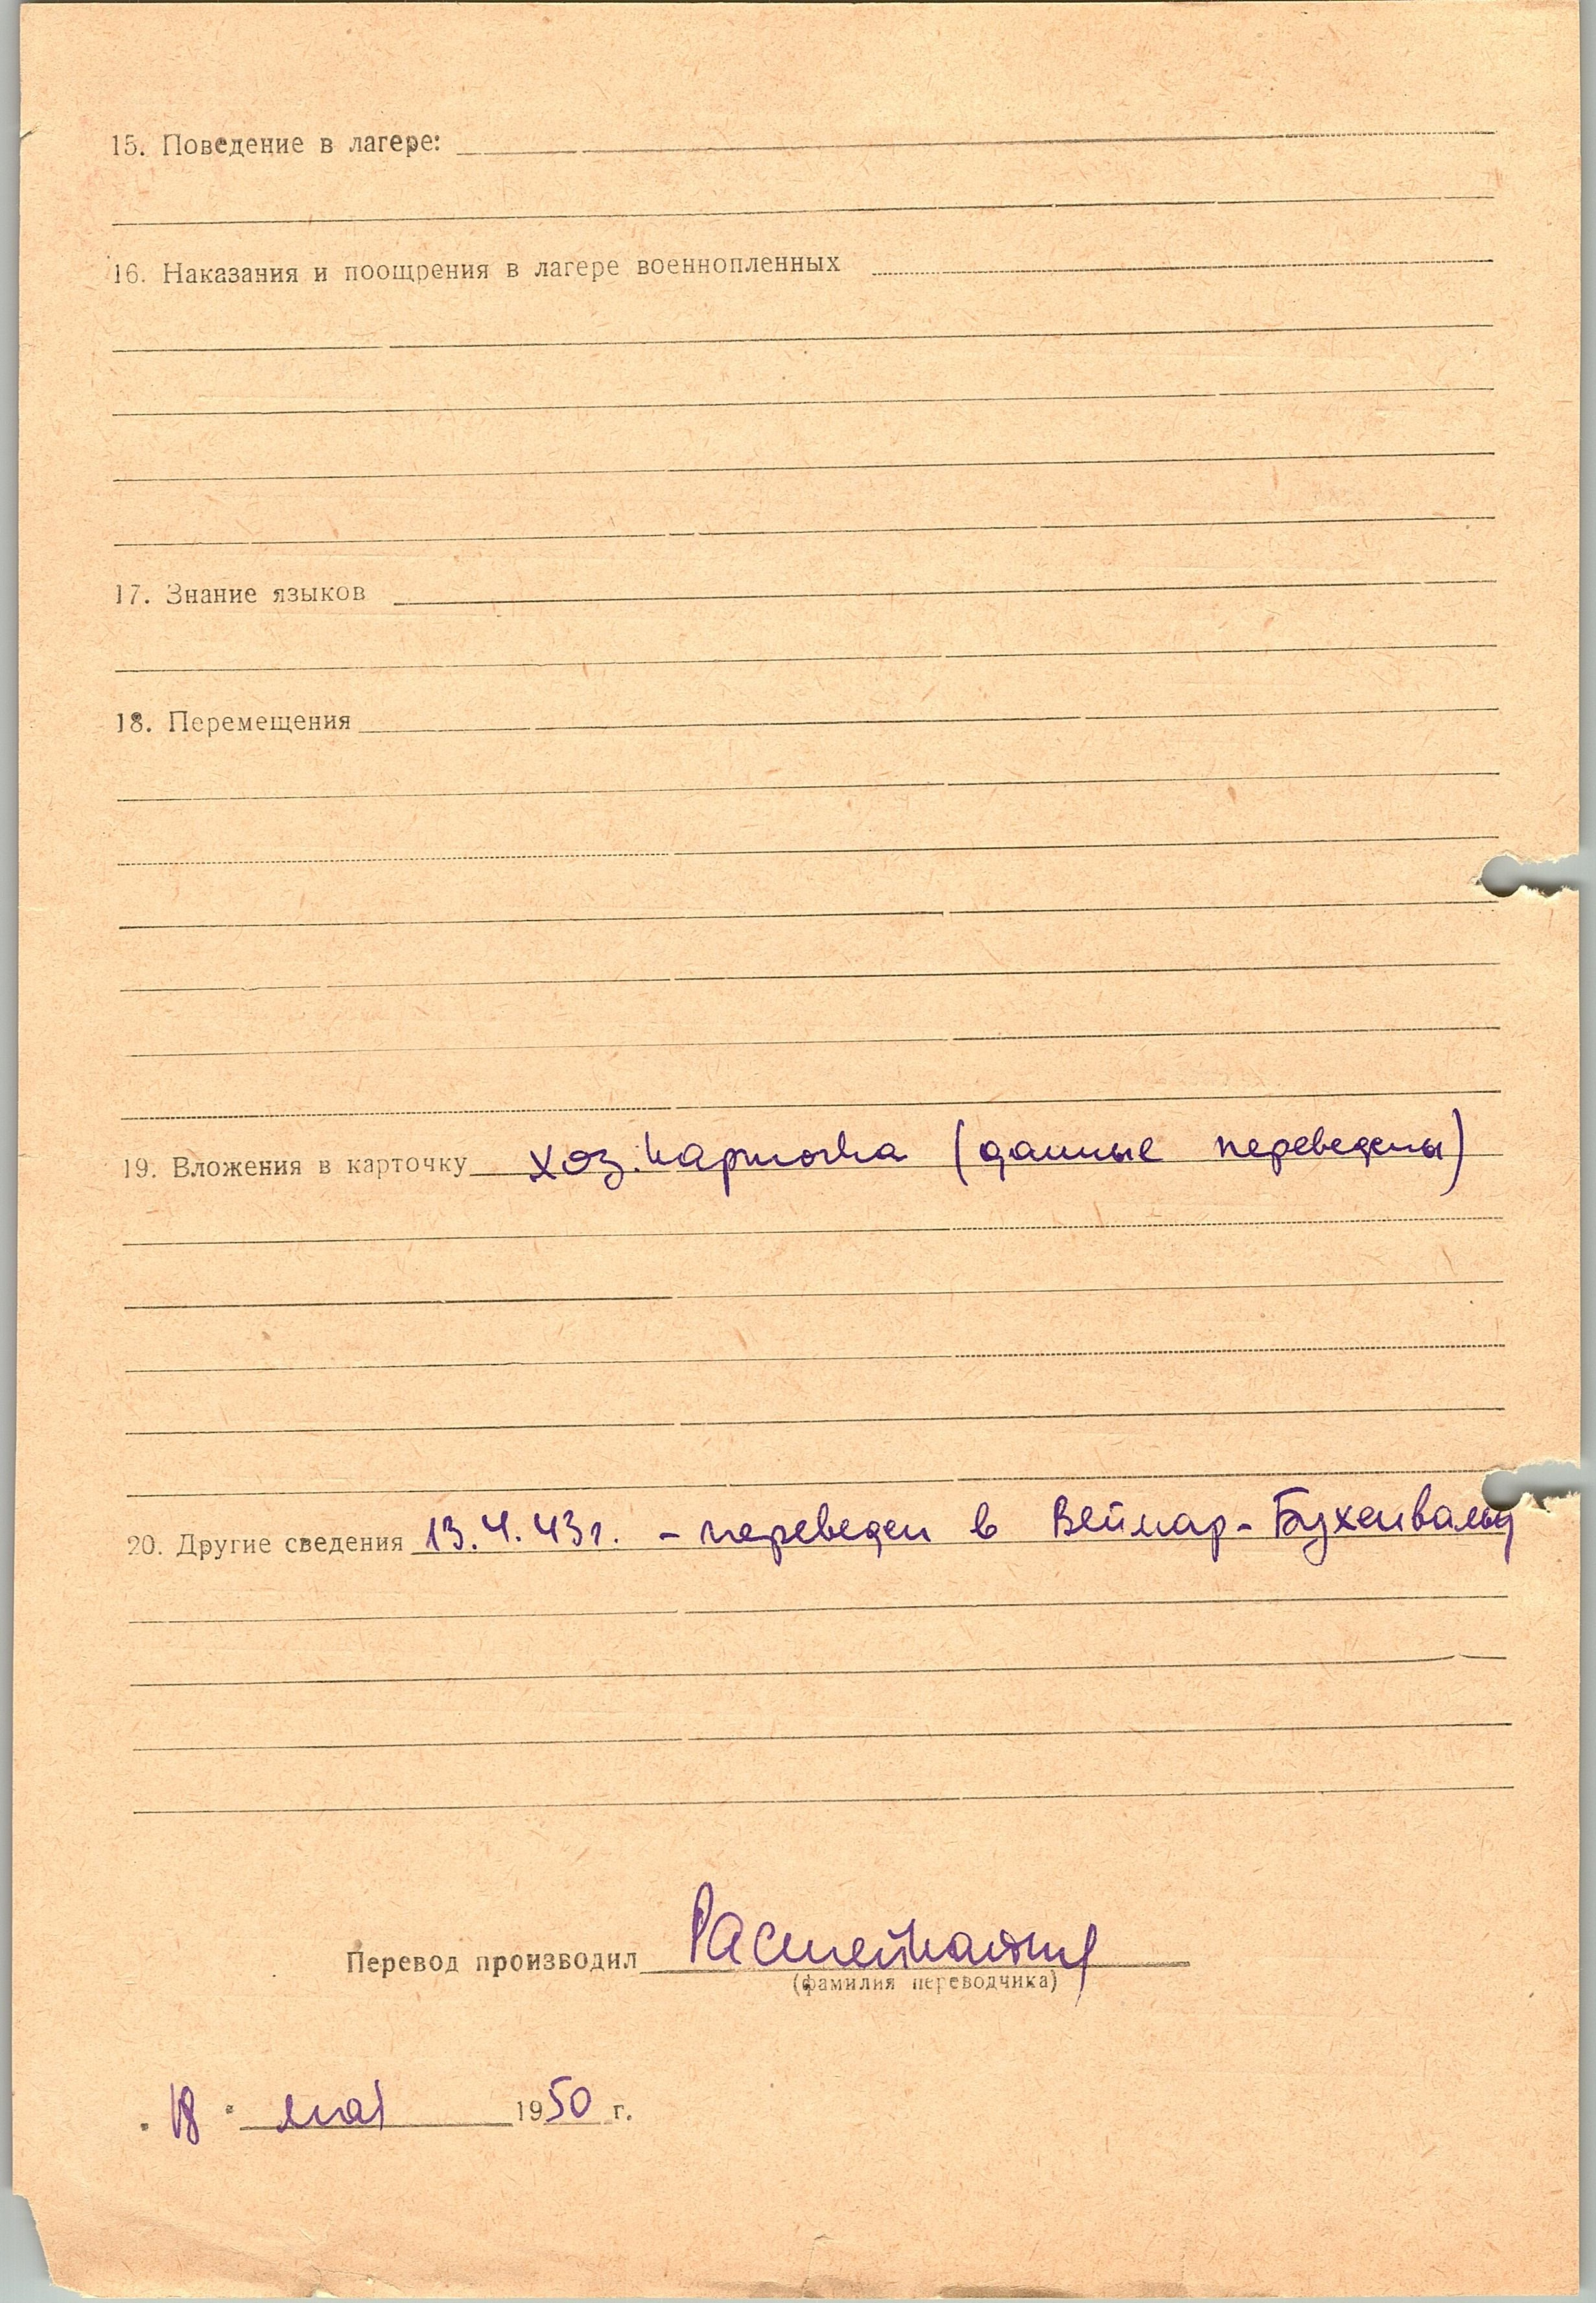 15. Поведение в лагере:
16. Наказания и поощрения в лагере военнопленных
17. Знание языков
18. Перемещения
19. Вложения в карточку хоз. карточка (данные переведены)
20. Другие сведения 13.4.43г. - переведен в Веймар-Бухенвальд
Перевод производил
(фамилия переводчика)
"18" мая 1950 г.